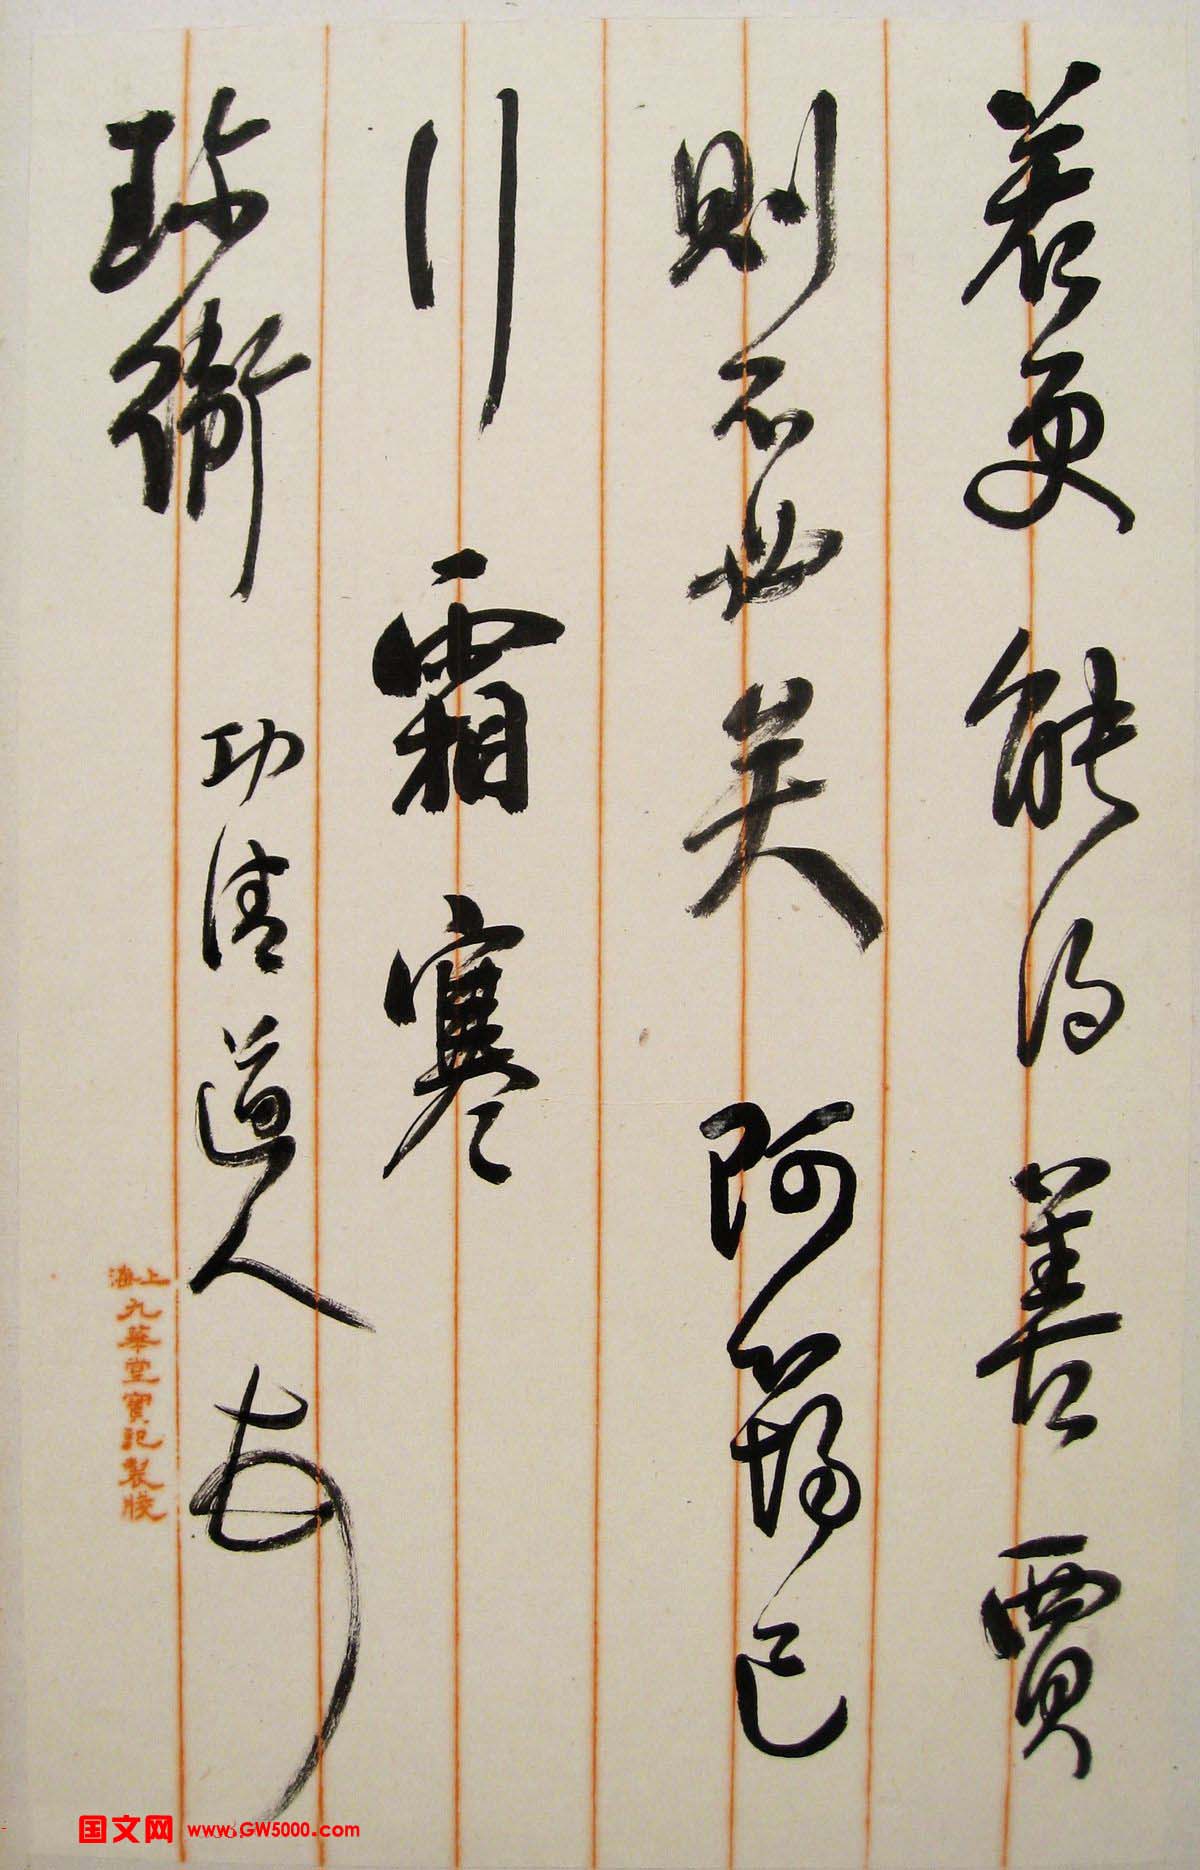 若更能得善賈
則不必关阿筠已
行霜寒
珍衛
功清道人
上海
九華堂寶記製牋
国文网 www.GW5000.com